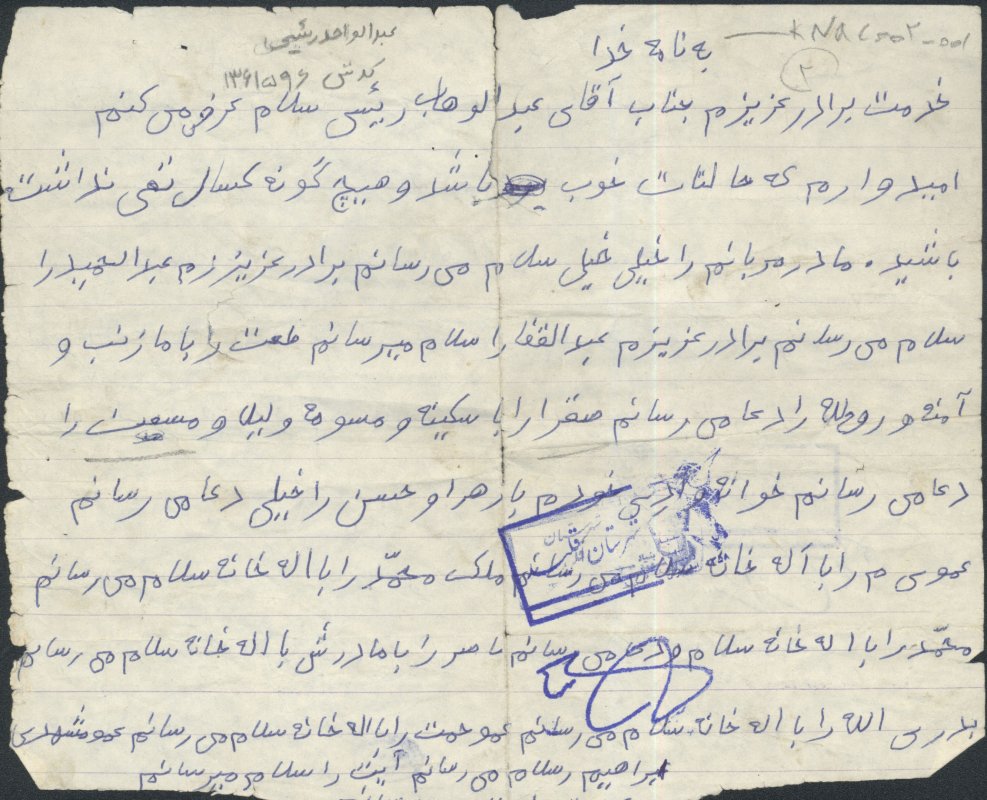 عبدالواحد رئیسی
KNAC002-001
کد ش ۱۳۶۱۵۹۶
۲
به نامه خدا
خدمت برادر عزیزم جناب آقای عبدالوهاب رئیسی سلام عرض می کنم
امید وارم که حالتات خوب باشد و هیچ گونه کسال تقی نداشت
باشید. مادر مهربانم را خیلی خیلی سلام می رسانم برادر عزیززم عبدالحمید را
سلام می رسانم برادر عزیزم عبدالغفار را سلام میرسانم طعت را با مازنب و
آمنه و روطله را دعا می رسانم صقرا را با سکینه و مسومه و لیلا و مسعت را
دعا می رسانم خوانه خودم با زهرا و حسن را خیلی دعا می رسانم
عموی م را با آله خانه سلام می رسانم ملک محمّد را با اله خانه سلام می رسانم
محمّد را با اله خانه سلام و دعا می رسانم ناصر را با مادرش با اله خانه سلام می رسانم
بدری الله را با اله خانه سلام می رسانم عمو حمت را با اله خانه سلام می رسانم عمو مشهدی
براهیم رسلام می رسانم آیت را سلام میرسانم